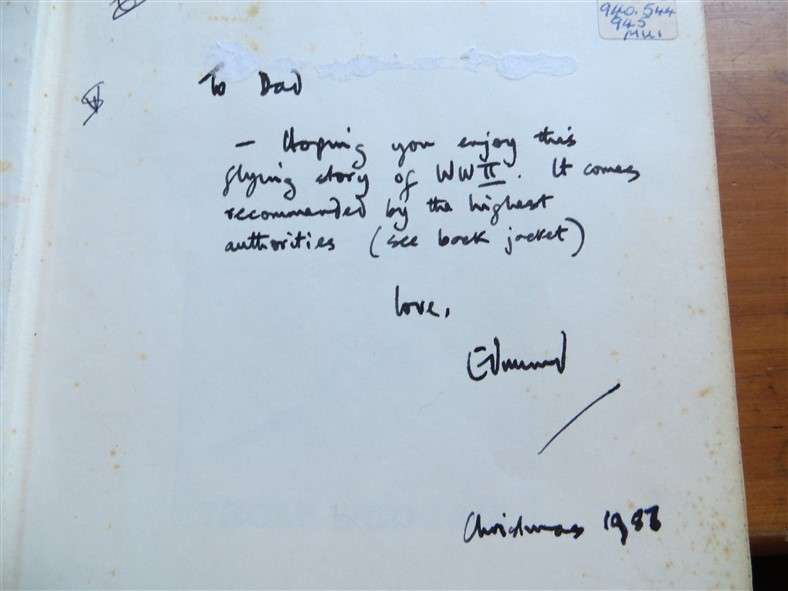 940.544
945
MUL
To Dad
— Hoping you enjoy this
flying story of WW II. It comes
recommended by the highest
authorities (see back jacket)
love,
Edmund
Christmas 1988